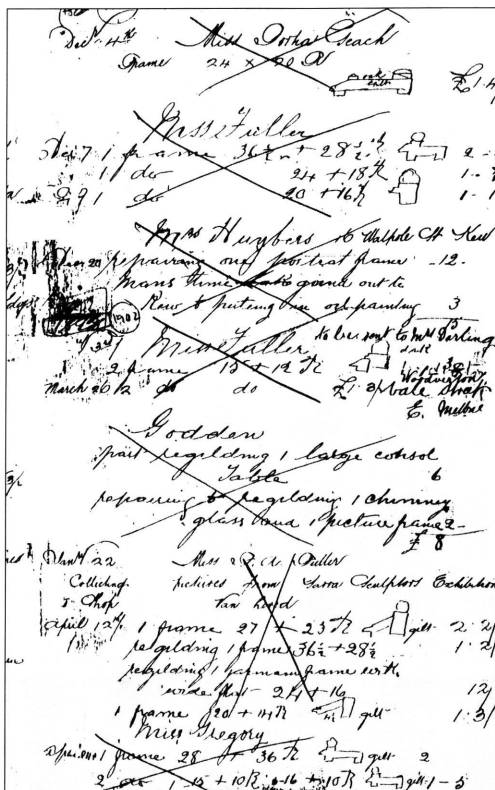 Decr 4th Miss Dotha Geach
Frame 24 x 20 R £1.4
Miss Fuller
Dec 7 1 frame 36½ + 28½ 2
1 do 24 + 18 R 1-
29 1 do 20 + 16 R 1-1
Mrs Huybers 16 Walpole St Kew
Decr 29 repairing one portrait frame -12-
Mans time going out to
Kew & puting one oil painting 3
1902 to be sent to Miss Darling
Miss Fuller
2 frame 15 + 12 R
March 26 12 do do £
Vale Street
E. Melbne
Godden
part regilding 1 large consol
Table 6
repairing & regilding 1 chimney
glass and 1 picture frame 2-
£8
Jany 22 Miss Fuller
Collecting pictures from Yarra Sculptors Exhibition
to Shop Van hired
April 12th 1 frame 27 + 23 R gilt 2.2/
regilding 1 frame 36½ + 28½ 1.2/
regilding 1 german frame with
wide flat 24 + 16 12/
1 frame 20 + 14 R gilt 1.3/
Miss Gregory
1 frame 28 + 36 R gilt 2
2 do 1-15 + 10 R 1-16 + 10 R gilt 1-5